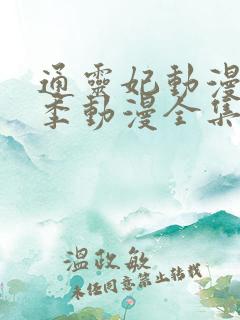 通靈妃動漫
季動漫全集
溫政敏
未经同意禁止转载